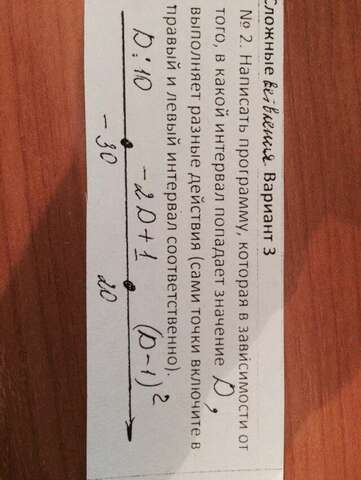 Сложные ветвления Вариант 3
№ 2. Написать программу, которая в зависимости от
того, в какой интервал попадает значение D,
выполняет разные действия (сами точки включите в
правый и левый интервал соответственно).
D:10 -2D+1 (D-1)²
-30 20